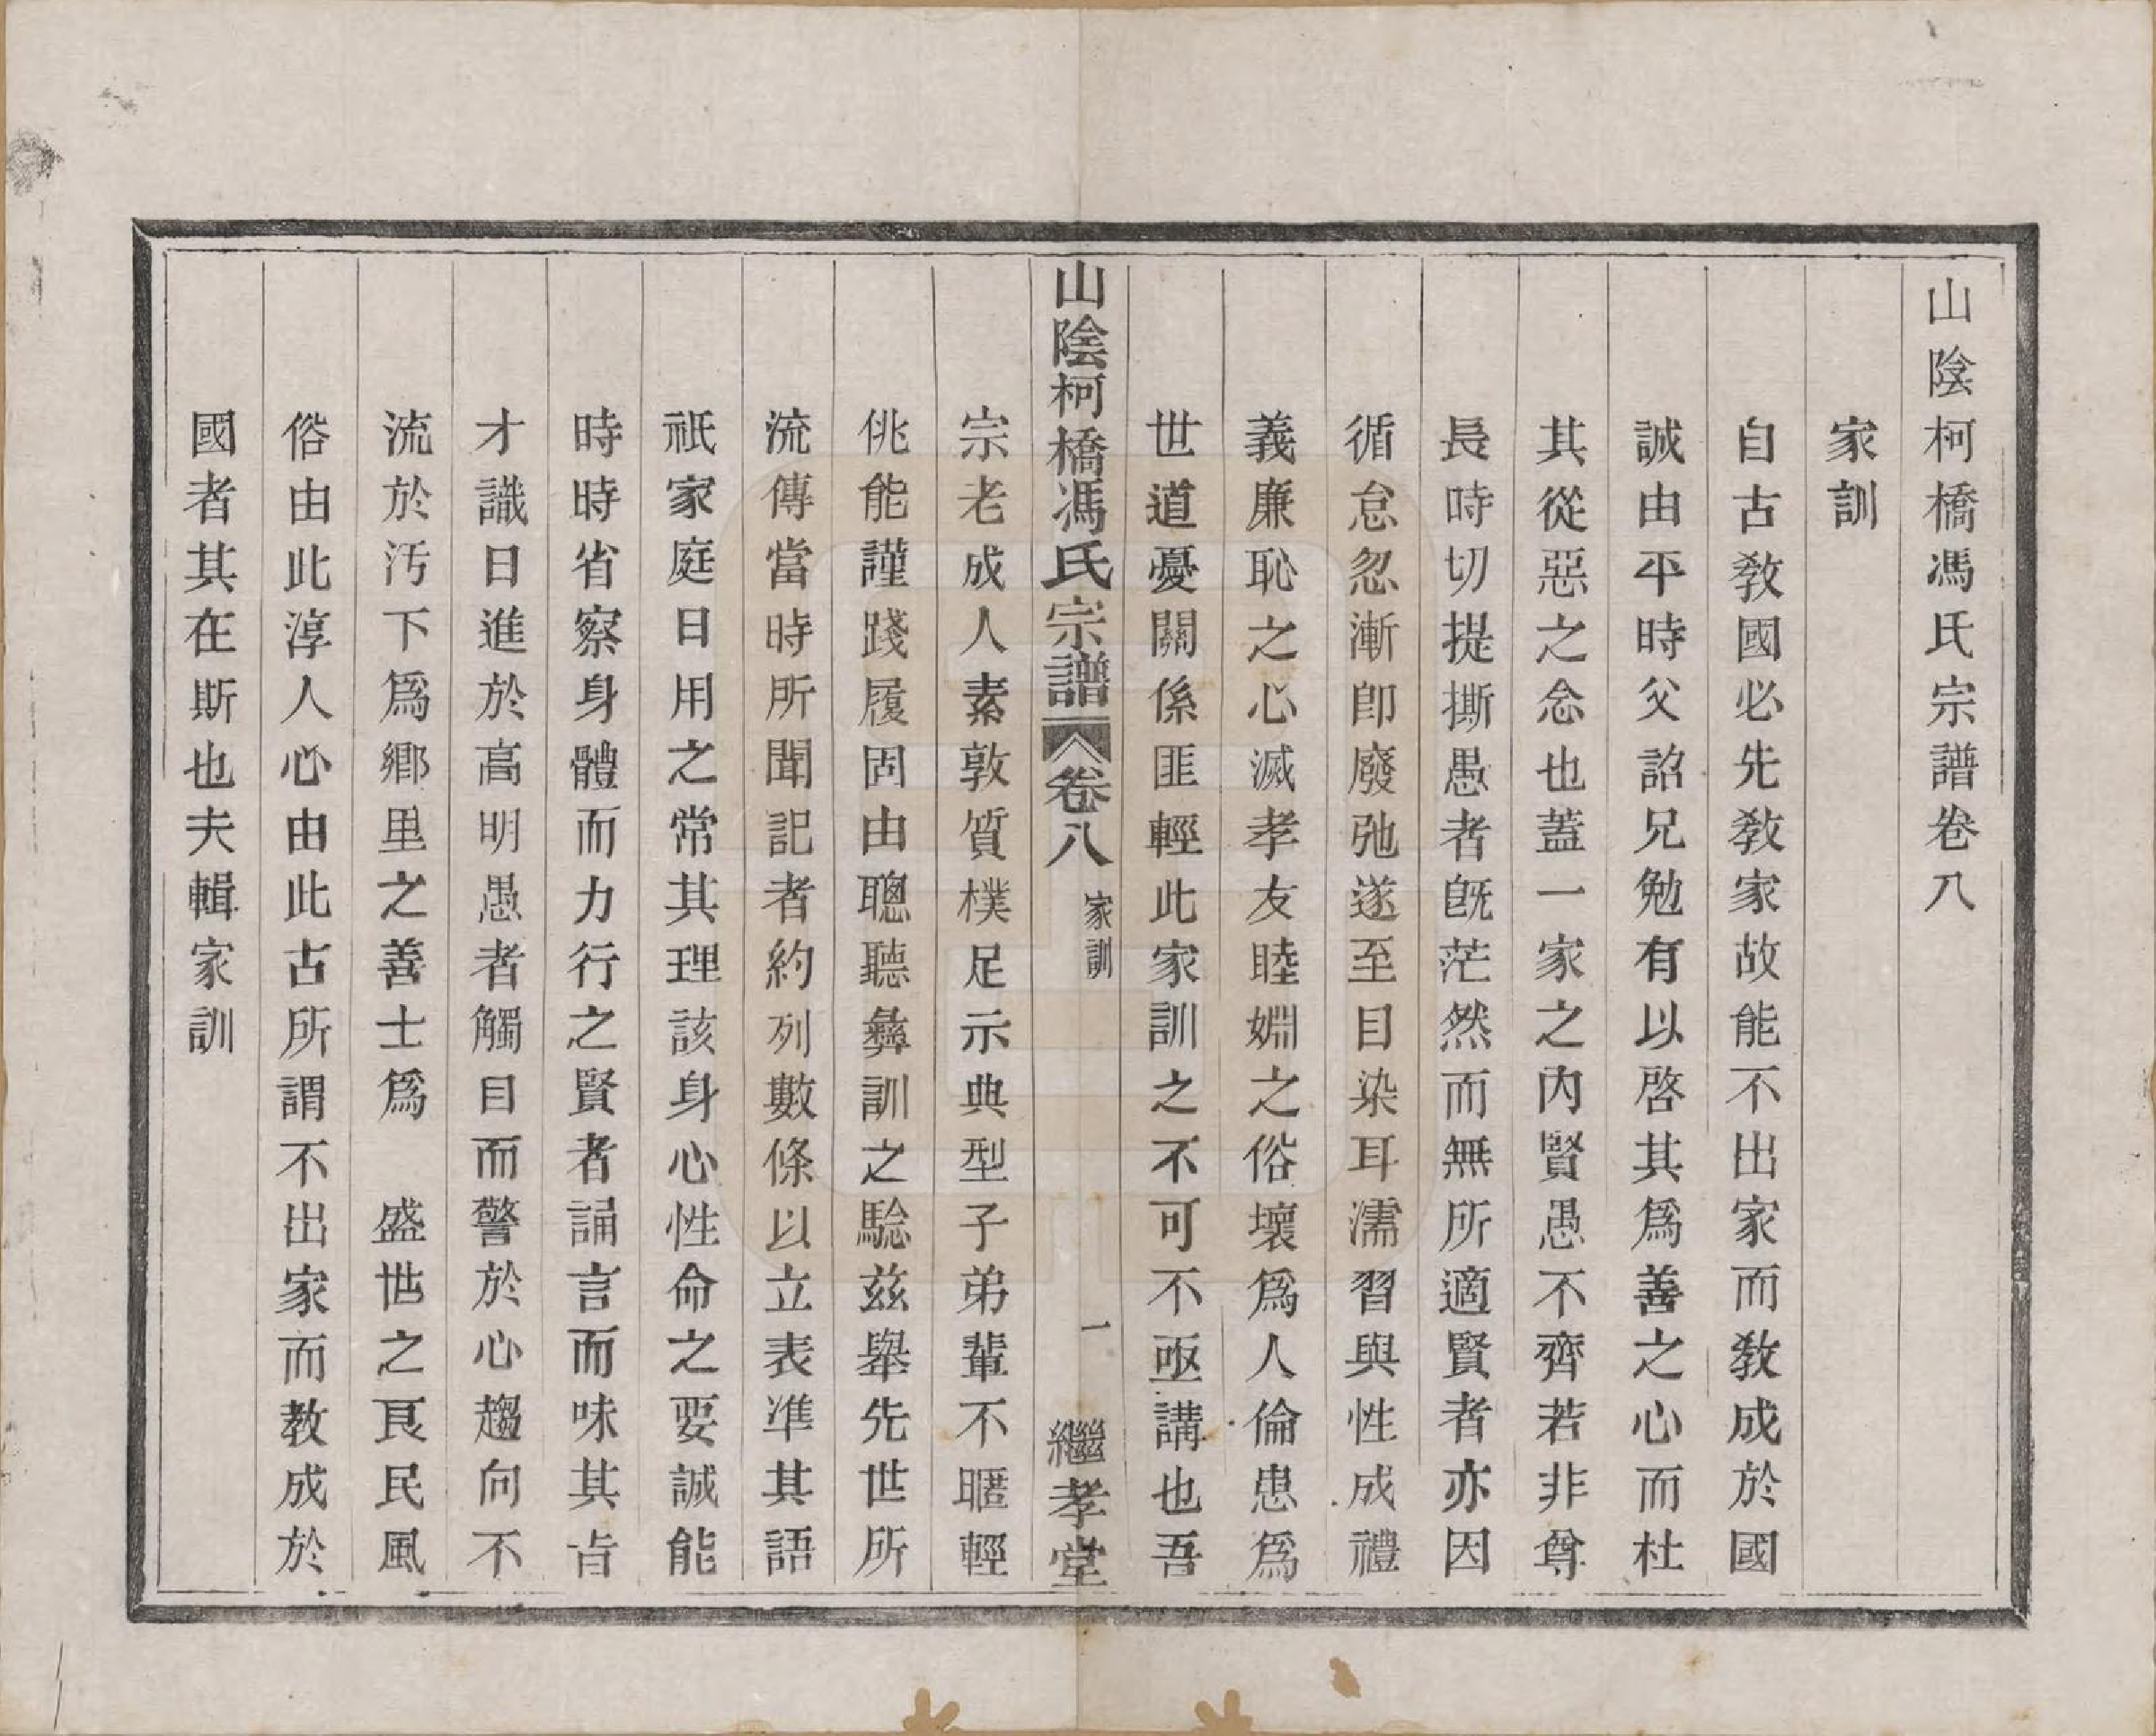 山陰柯橋馮氏宗譜卷八
家訓
自古敎國必先敎家故能不出家而敎成於國
誠由平時父詔兄勉有以啓其爲善之心而杜
其從惡之念也蓋一家之內賢愚不齊若非尊
長時切提撕愚者旣茫然而無所適賢者亦因
循怠忽漸卽廢弛遂至目染耳濡習與性成禮
義廉恥之心滅孝友睦婣之俗壞爲人倫患爲
世道憂關係匪輕此家訓之不可不亟講也吾
山陰柯橋馮氏宗譜 卷八 家訓 一 繼孝堂
宗老成人素敦質樸足示典型子弟輩不暱輕
佻能謹踐履固由聰聽彝訓之驗茲舉先世所
流傳當時所聞記者約列數條以立表準其語
祇家庭日用之常其理該身心性命之要誠能
時時省察身體而力行之賢者誦言而味其旨
才識日進於高明愚者觸目而警於心趨向不
流於汚下爲鄉里之善士爲　盛世之良民風
俗由此淳人心由此古所謂不出家而敎成於
國者其在斯也夫輯家訓